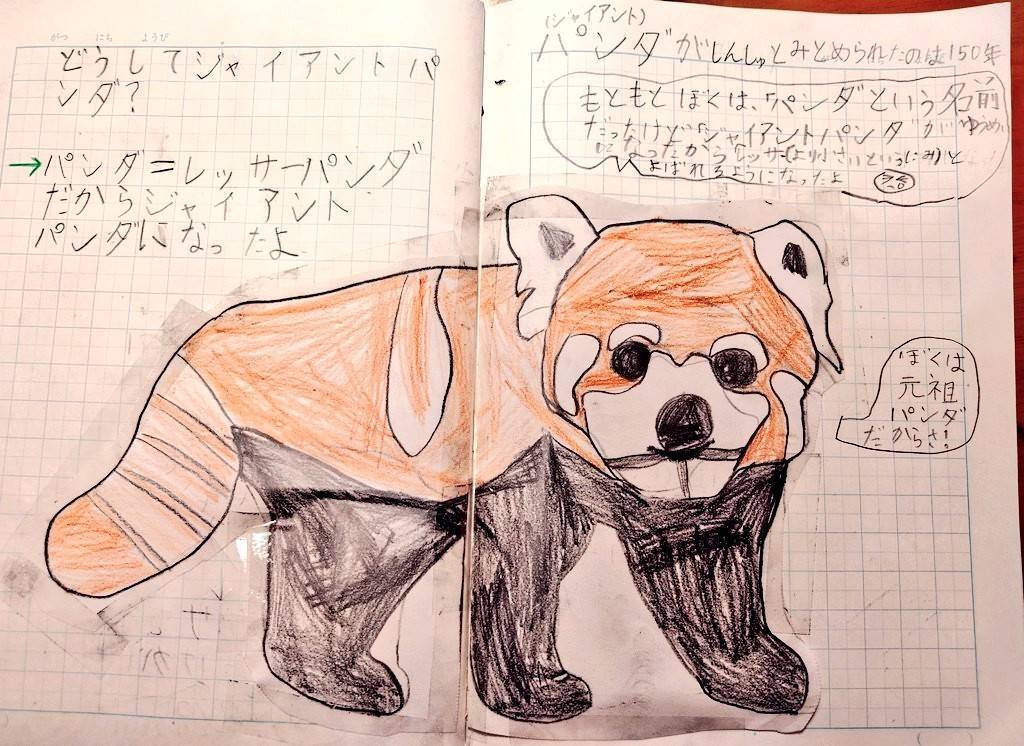 がつ にち ようび
どうしてジャイアントパ
ンダ?
→パンダ=レッサーパンダ
だからジャイアント
パンダになったよ
(ジャイアント)
パンダがしんしゅとみとめられたのは150年
もともとぼくは、「パンダという名前
だったけど「ジャイアントパンダがゆうめい
になったからレッサー(より小さいといういみ)と
よばれるようになったよ
ぼくは
元祖
パンダ
だからさ!